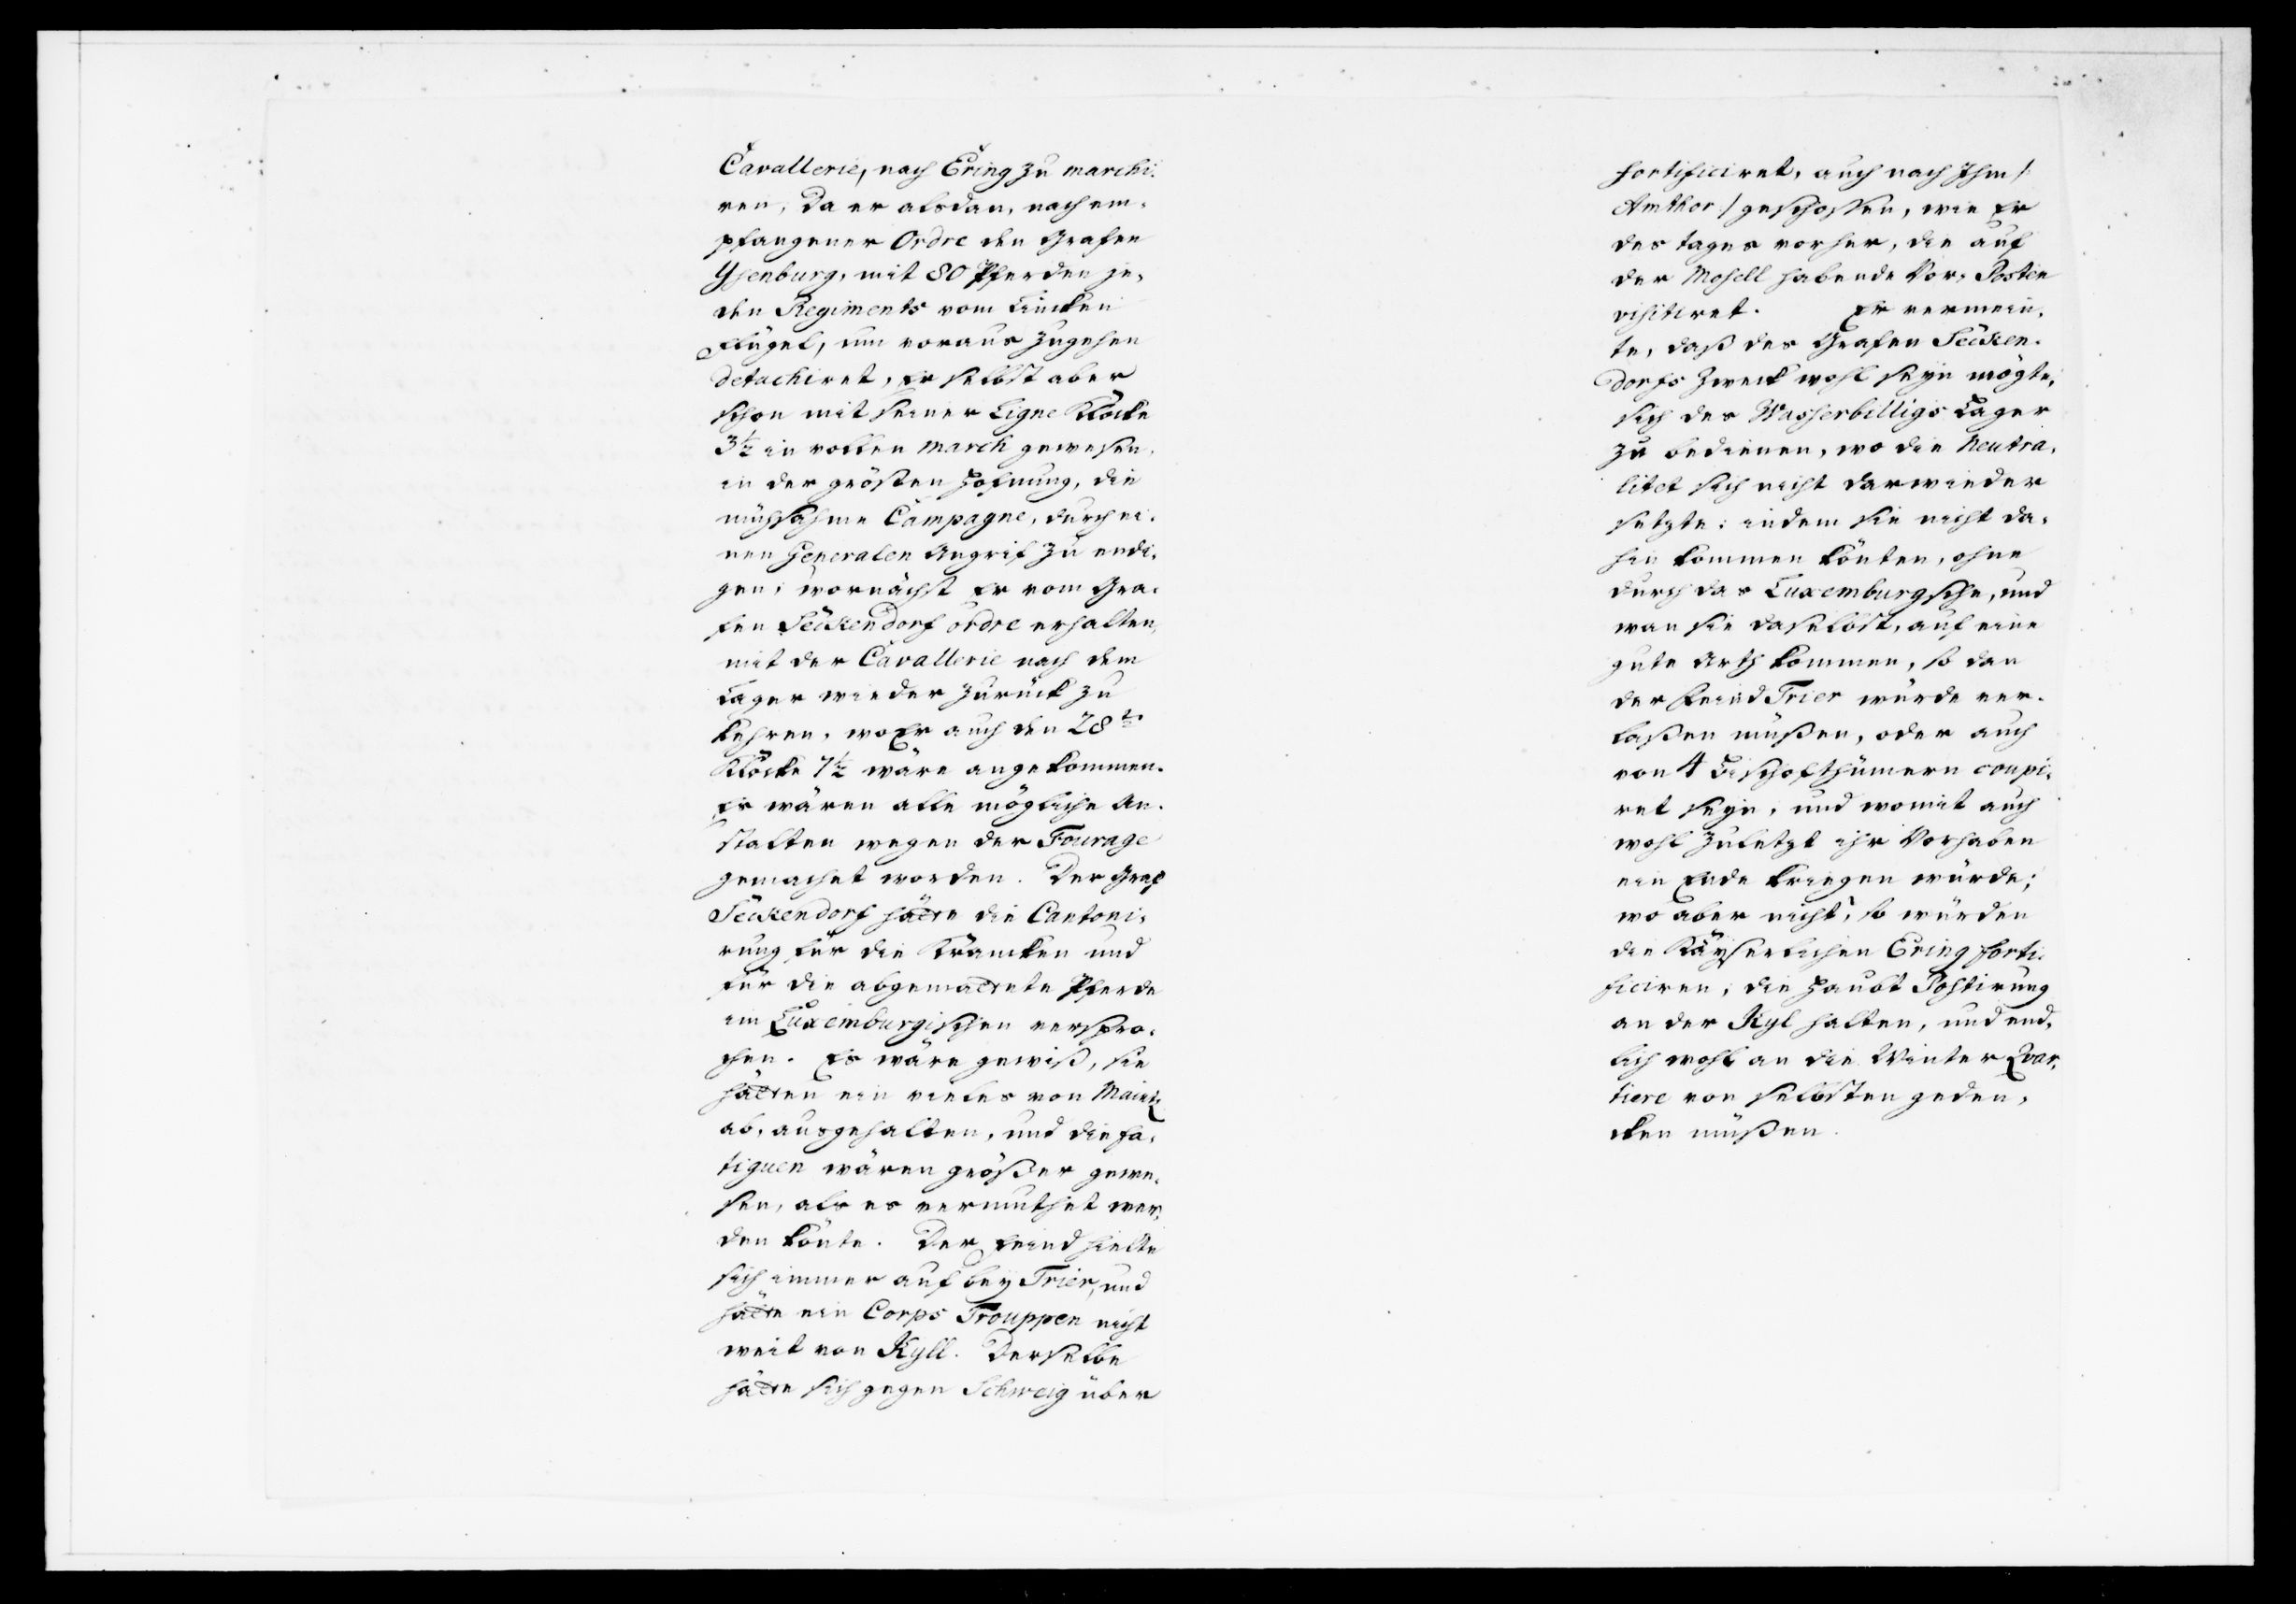 Cavallerie, nach Ering zu marchi-
ren, da er alsdan, nach em-
pfangener Ordre den Grafen
Ysenburg, mit 80 Pferden je-
den Regiments vom Lincken
Flügel, um voraus zugehen
detachiret, Er selbst aber
schon mit seiner Ligne Klocke
3½ in vollen march gewesen,
in der größten Hofnung, die
mühsahme Campagne, durch ei-
nen Generalen Angrif zu endi-
gen; wornächst Er vom Gra-
fen Seckendorf ordre erhalten,
mit der Cavallerie nach dem
Lager wieder zurück zu
kehren, wo Er auch den 28t.
Klocke 7½ wäre angekommen.
Es wären alle mögliche An-
stalten wegen der Fourage
gemachet worden. Der Graf
Seckendorf hätte die Cantoni-
rung für die Krancken und
für die abgemattete Pferde
im Luxemburgischen verspro-
chen. Es wäre gewiß, sie
hätten ein vieles von Maintz
ab, ausgehalten, und die fa-
tiguen wären größer gewe-
sen, als es vermuthet wer-
den könte. Der Feind hielte
sich immer auf bey Trier, und
hätte ein Corps Trouppen nicht
weit von Kyll. Derselbe
hätte sich gegen Schweig über
fortificiret, auch nach Ihm /:
Amthor :/ geschossen, wie Er
des tages vorher, die auf
der Mosell habende Vor-Posten
visitiret. Er vermein-
te, daß des Grafen Secken-
dorfs Zweck wohl seyn mögte,
sich des Wasserbilligs Lager
zu bedienen, wo die Neutra-
litet sich nicht darwieder
setzte; indem sie nicht da-
hin kommen könten, ohne
durch das Luxemburgsche, und
wan sie daselbst, auf eine
gute Arth kommen, so dan
der Feind Trier würde ver-
laßen müßen, oder auch
von 4 Bischofthümern coupi-
ret seyn, und womit auch
wohl zuletzt ihr Vorhaben
ein Ende kriegen würde;
wo aber nicht, so würden
die Käyserlichen Ering forti-
ficiren, die Haubt Postirung
an der Kyl halten, und end-
lich wohl an die Winter Qvar-
tiere von selbsten geden-
cken müßen.